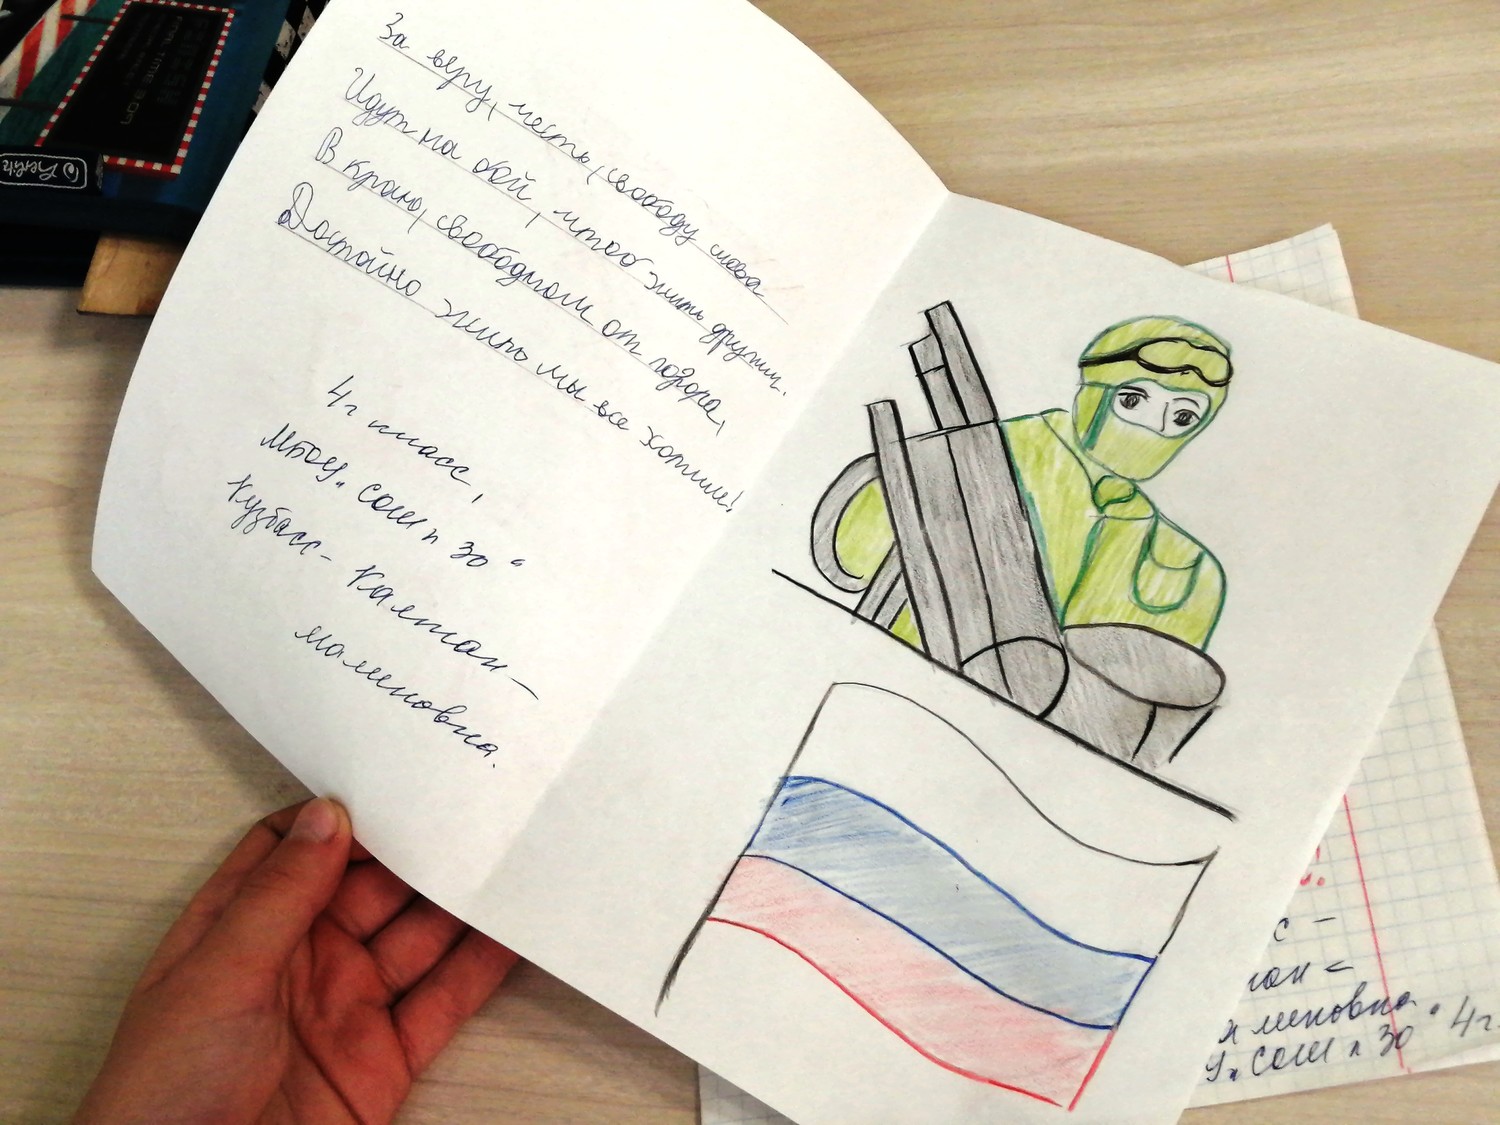 За веру, честь, свободу слова
Идут на бой, чтоб жить другим.
В краю, свободном от позора,
Достойно жить мы все хотим!
4г класс,
МБОУ "СОШ n 30"
Кузбасс-Калтан-
малиновка.
© herlitz
с -
тан <
линовка.
У "СОШ n 30" 4г.